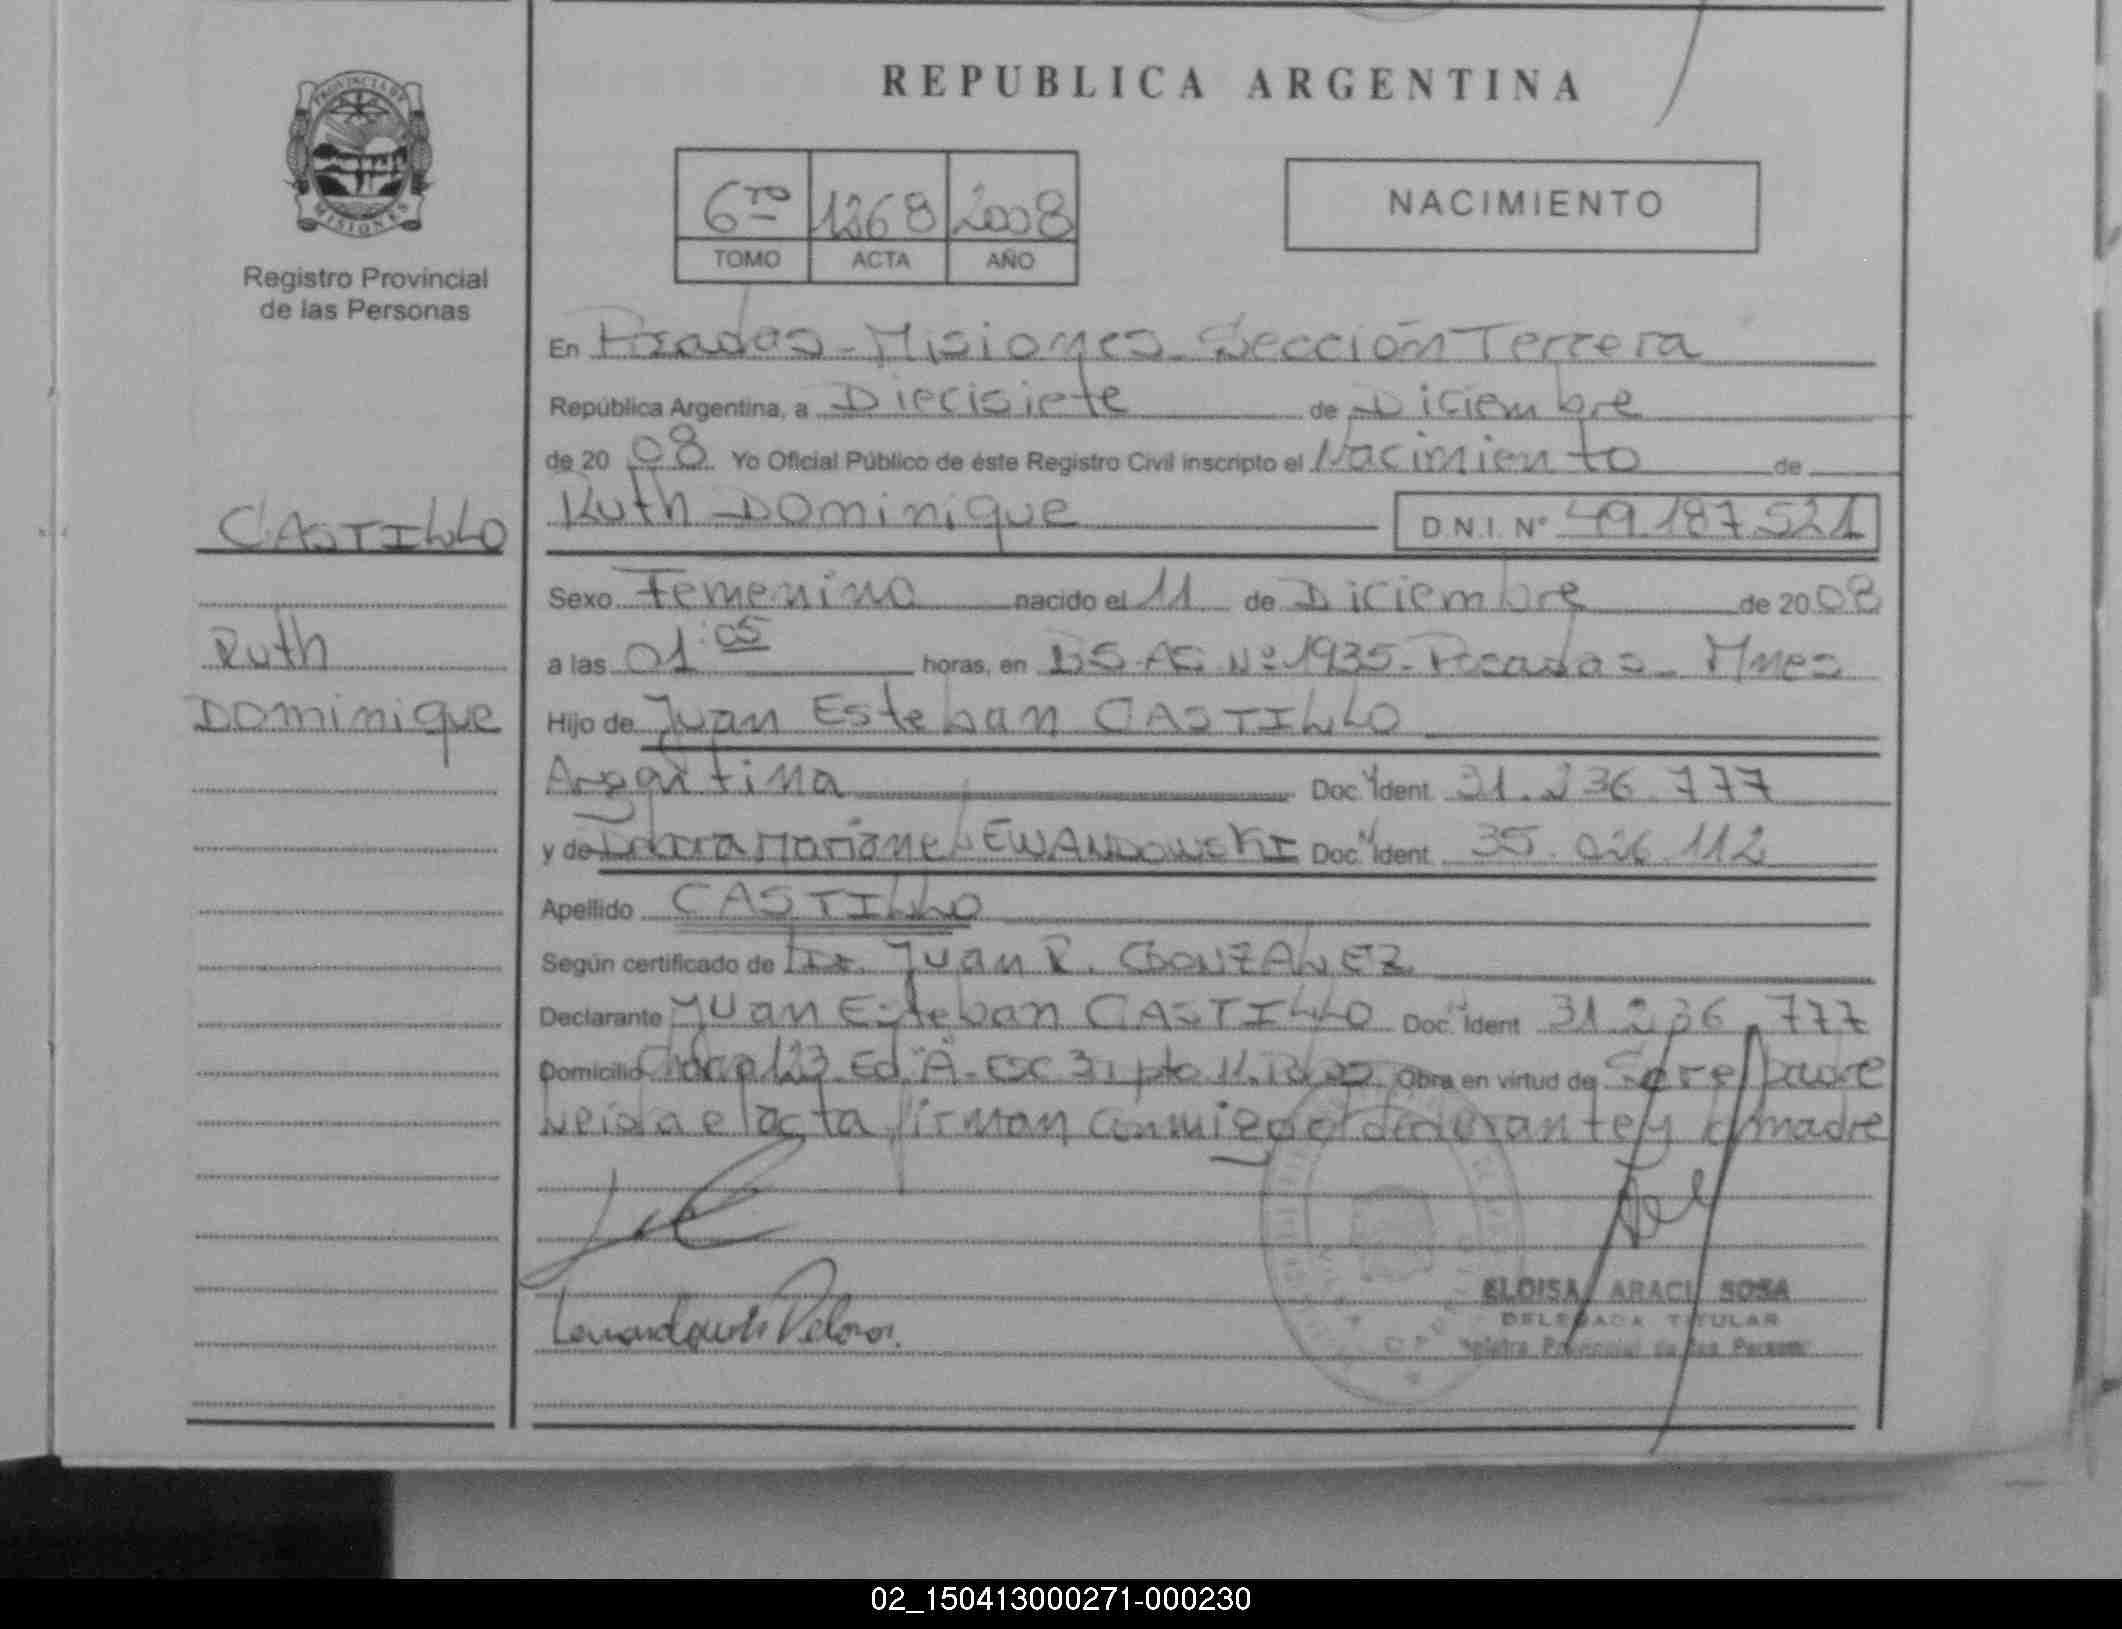 PROVINCIA DE
MISIONES
Registro Provincial
de las Personas
CASTILLO
Ruth
Dominique
REPUBLICA ARGENTINA
6to 1268 2008
TOMO ACTA AÑO
NACIMIENTO
En Posadas - Misiones - Sección Tercera
República Argentina, a Diecisiete de Diciembre
de 20 08 Yo Oficial Público de éste Registro Civil inscripto el Nacimiento de
Ruth Dominique D.N.I. Nº 49.187.521
Sexo Femenino nacido el 11 de Diciembre de 20 08
a las 01:05 horas, en BS.AS. Nº 1935 - Posadas - Mnes
Hijo de Juan Esteban CASTILLO
Argentina Doc. Ident. 31.236.777
y de Mariane LEWANDOWSKI Doc. Ident. 35.026.112
Apellido CASTILLO
Según certificado de Dr. Juan R. GONZALEZ
Declarante Juan Esteban CASTILLO Doc. Ident 31.236.777
Domicilio 123 Ed. "A" - ESC 31 pto 11. Obra en virtud de Ser el padre
Leida el acta firman conmigo el declarante y la madre
Lewandowski
ELOISA ARACI SOSA
DELEGADA TITULAR
Registro Provincial de las Personas
02_150413000271-000230